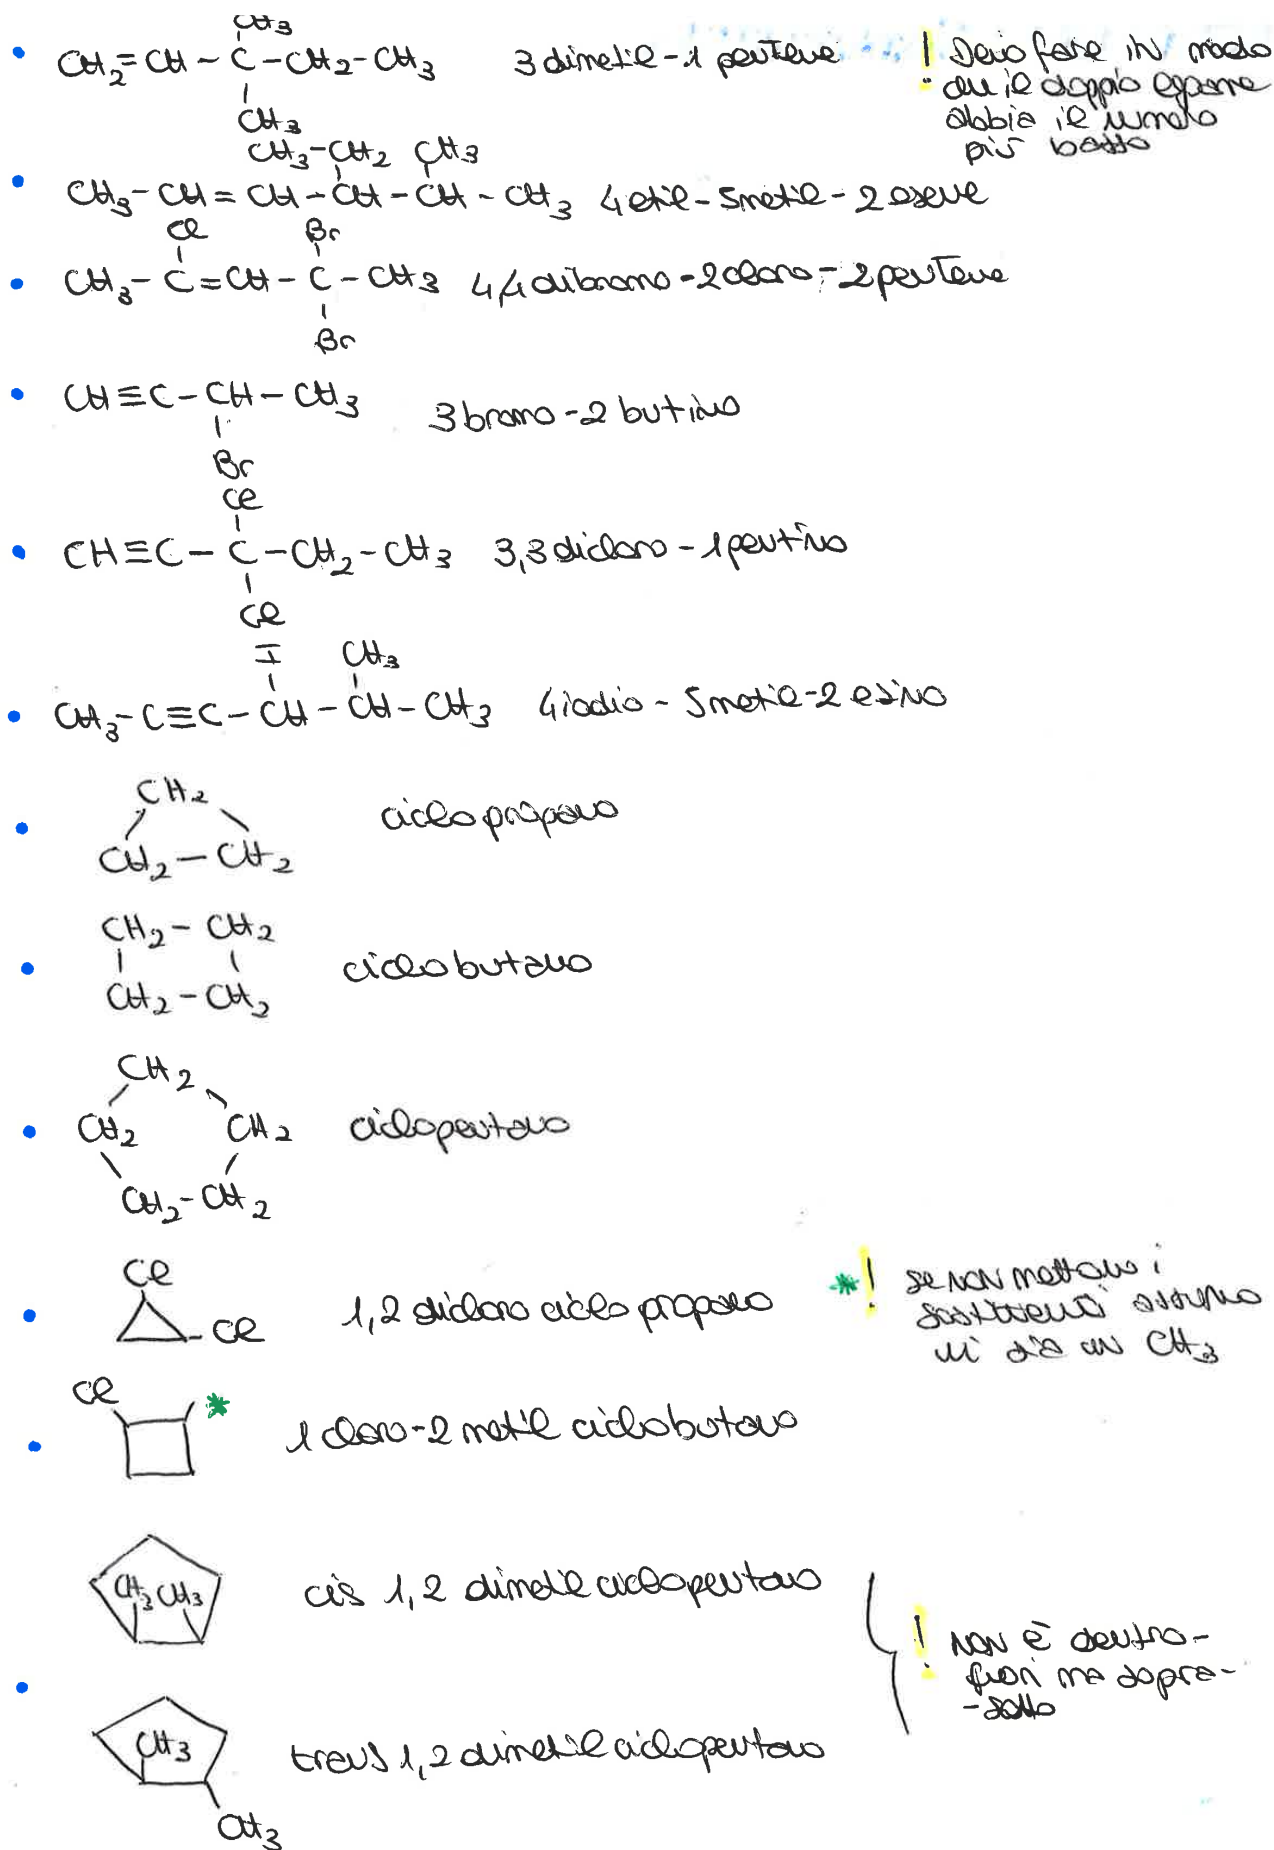 CH3
CH2=CH-C-CH2-CH3 3 dimetil-1 pentene ! Devo fare in modo
che il doppio legame
CH3 abbia il numero
più basso
CH3-CH2 CH3
CH3-CH=CH-CH-CH-CH3 4 etil-5 metil-2 esene
Cl Br
CH3-C=CH-C-CH3 4,4 dibromo-2 cloro-2 pentene
Br
CH≡C-CH-CH3 3 bromo-2 butino
Br
Cl
CH≡C-C-CH2-CH3 3,3 dicloro-1 pentino
Cl
I CH3
CH3-C≡C-CH-CH-CH3 4 iodio-5 metil-2 esino
CH2 ciclo propano
CH2-CH2
CH2-CH2 ciclo butano
CH2-CH2
CH2
CH2 CH2 ciclopentano
CH2-CH2
Cl
Cl 1,2 dicloro ciclo propano *! se non mettono i
sostituenti assumo
ci sia un CH3
Cl *
1 cloro-2 metil ciclobutano
CH3 CH3 cis 1,2 dimetil ciclopentano
! non è dentro-
fuori ma sopra-
-sotto
CH3 trans 1,2 dimetil ciclopentano
CH3